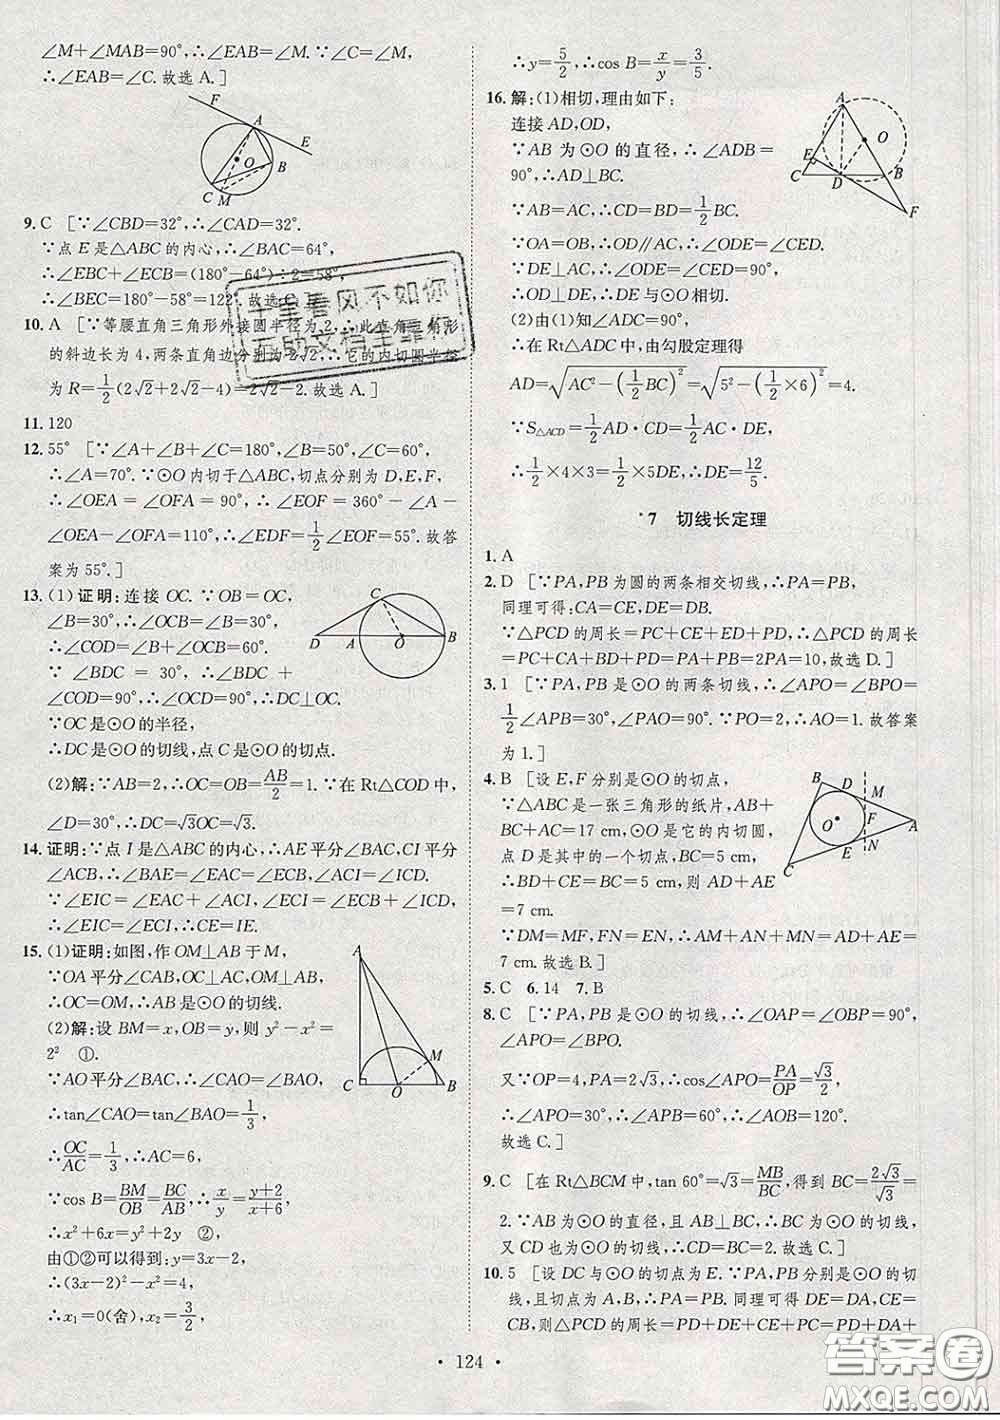 ∠M+∠MAB=90°,∴∠EAB=∠M.∵∠C=∠M,
∴∠EAB=∠C.故选A.]
F
A
E
O
B
C
M
9.C [∵∠CBD=32°,∴∠CAD=32°.
∵点E是△ABC的内心,∴∠BAC=64°,
∴∠EBC+∠ECB=(180°-64°)÷2=58°,
∴∠BEC=180°-58°=122°.故选C.]
10.A [∵等腰直角三角形外接圆半径为2,∴此直角三角形
的斜边长为4,两条直角边分别为2√2,∴它的内切圆半径
为R=1/2(2√2+2√2-4)=2√2-2.故选A.]
11.120
12.55° [∵∠A+∠B+∠C=180°,∠B=50°,∠C=60°,
∴∠A=70°.∵⊙O内切于△ABC,切点分别为D,E,F,
∴∠OEA=∠OFA=90°,∴∠EOF=360°-∠A-
∠OEA-∠OFA=110°,∴∠EDF=1/2∠EOF=55°.故答
案为55°.]
13.(1)证明:连接OC.∵OB=OC,
∠B=30°,∴∠OCB=∠B=30°,
∴∠COD=∠B+∠OCB=60°.
∵∠BDC=30°,∴∠BDC+
∠COD=90°,∴∠DCO=90°,∴DC⊥OC.
∵OC是⊙O的半径,
∴DC是⊙O的切线,点C是⊙O的切点.
(2)解:∵AB=2,∴OC=OB=AB/2=1.∵在Rt△COD中,
∠D=30°,∴DC=√3OC=√3.
C
D A O B
14.证明:∵点I是△ABC的内心,∴AE平分∠BAC,CI平分
∠ACB,∴∠BAE=∠EAC=∠ECB,∠ACI=∠ICD.
∵∠EIC=∠EAC+∠ACI,∠ECI=∠ECB+∠ICB,
∴∠EIC=∠ECI,∴CE=IE.
15.(1)证明:如图,作OM⊥AB于M,
∵OA平分∠CAB,OC⊥AC,OM⊥AB,
∴OC=OM,∴AB是⊙O的切线.
(2)解:设BM=x,OB=y,则y²-x²=
2² ①.
∵AO平分∠BAC,∴∠CAO=∠BAO,
∴tan∠CAO=tan∠BAO=1/3,
∴OC/AC=1/3,∴AC=6,
∵cos B=BM/OB=BC/AB,∴x/y=(y+2)/(x+6),
∴x²+6x=y²+2y ②
由①②可以得到:y=3x-2,
∴(3x-2)²-x²=4,
∴x₁=0(舍),x₂=3/2,
A
M
C O B
∴y=5/2,∴cos B=x/y=3/5.
16.解:(1)相切,理由如下:
连接AD,OD,
∵AB为⊙O的直径,∴∠ADB=
90°,∴AD⊥BC.
∵AB=AC,∴CD=BD=1/2BC.
∵OA=OB,∴OD∥AC,∴∠ODE=∠CED.
∵DE⊥AC,∴∠ODE=∠CED=90°,
∴OD⊥DE,∴DE与⊙O相切.
(2)由(1)知∠ADC=90°,
∴在Rt△ADC中,由勾股定理得
AD=√(AC²-(1/2BC)²)=√(5²-(1/2×6)²)=4.
∵S△ACD=1/2AD·CD=1/2AC·DE,
∴1/2×4×3=1/2×5DE,∴DE=12/5.
A
O
E
C D B
F
*7 切线长定理
1.A
2.D [∵PA,PB为圆的两条相交切线,∴PA=PB,
同理可得:CA=CE,DE=DB.
∵△PCD的周长=PC+CE+ED+PD,∴△PCD的周长
=PC+CA+BD+PD=PA+PB=2PA=10,故选D.]
3.1 [∵PA,PB是⊙O的两条切线,∴∠APO=∠BPO=
1/2∠APB=30°,∠PAO=90°.∵PO=2,∴AO=1.故答案
为1.]
4.B [设E,F分别是⊙O的切点,
∵△ABC是一张三角形的纸片,AB+
BC+AC=17 cm,⊙O是它的内切圆,
点D是其中的一个切点,BC=5 cm,
∴BD+CE=BC=5 cm,则AD+AE=
7 cm.
∵DM=MF,FN=EN,∴AM+AN+MN=AD+AE=
7 cm.故选B.]
B D M
O F A
E N
C
5.C 6.14 7.B
8.C [∵PA,PB是⊙O的切线,∴∠OAP=∠OBP=90°,
∠APO=∠BPO.
又∵OP=4,PA=2√3,∴cos∠APO=PA/OP=√3/2,
∴∠APO=30°,∴∠APB=60°,∴∠AOB=120°.
故选C.]
9.C [在Rt△BCM中,tan 60°=√3=MB/BC,得到BC=2√3/√3=
2.∵AB为⊙O的直径,且AB⊥BC,∴BC为⊙O的切线,
又CD也为⊙O的切线,∴CD=BC=2.故选C.]
10.5 [设DC与⊙O的切点为E.∵PA,PB分别是⊙O的切
线,且切点为A,B,∴PA=PB.同理可得DE=DA,CE=
CB,则△PCD的周长=PD+DE+PC+CE=PD+DA+
千里看风不如你
互助文档全靠你
• 124 •
答案圈
MXQE.COM